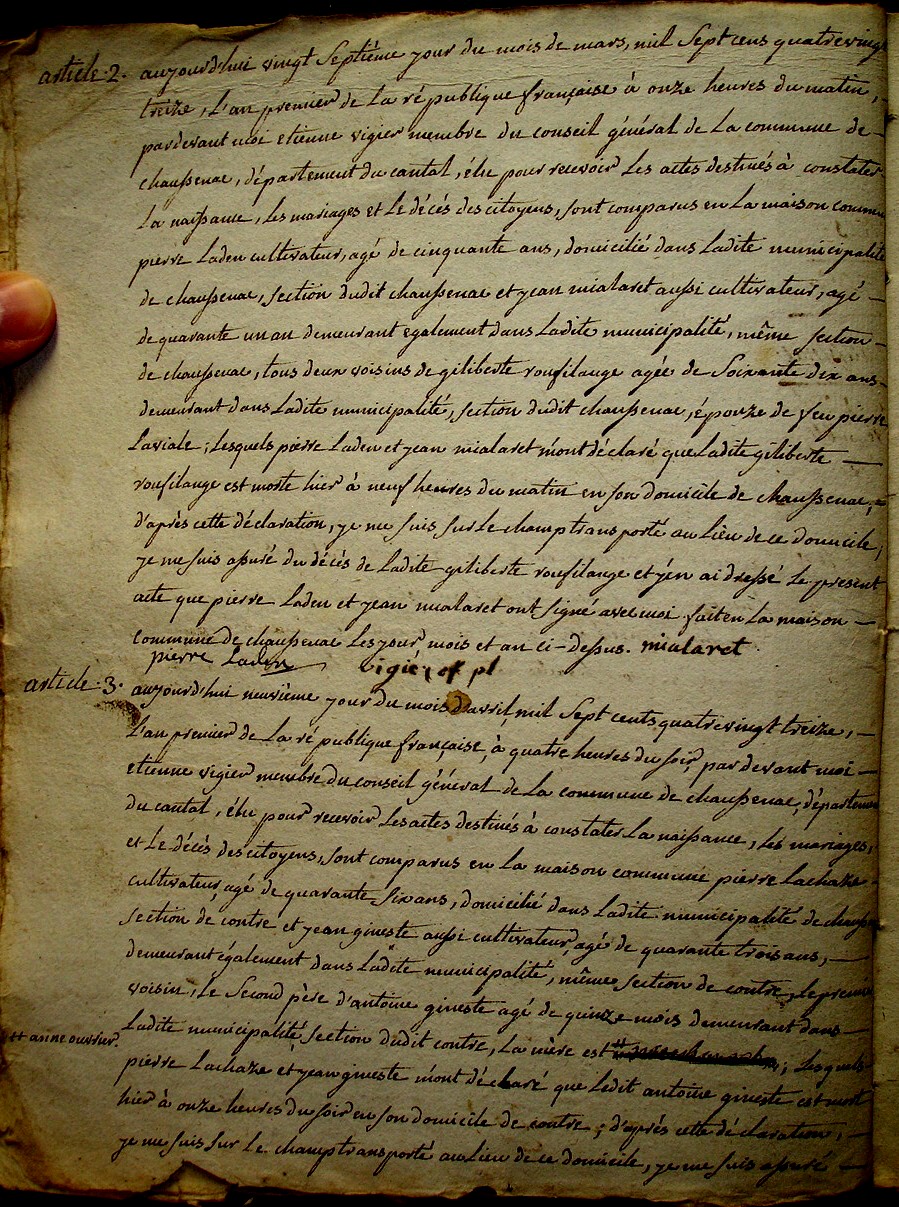 article. 2. aujourd'hui vingt Septième jour du mois de mars, mil Sept cens quatrevingt
treize, L'an premier de La république française à onze heures du matin, -
pardevant moi etienne vigier membre du conseil général de La commune de -
chaussenac, département du cantal, élu pour recevoir Les actes destinés à constater
La naissance, Les mariages et Le décès des citoyens, sont comparus en La maison commune
pierre Laden cultivateur, agé de cinquante ans, domicilié dans Ladite municipalité
de chaussenac, section dudit chaussenac et jean mialaret aussi cultivateur, agé -
de quarante un an demeurant egalement dans Ladite municipalité, même section -
de chaussenac, tous deux voisins de giliberte roufilange agée de Soixante dix ans -
demeurant dans Ladite municipalité, section dudit chaussenac, épouze de feu pierre
Laviale ; Lesquels pierre Laden et jean mialaret m'ont déclaré que Ladite giliberte -
roufilange est morte hier à neuf heures du matin en son domicile de chaussenac, -
d'après cette déclaration, je me suis sur Le champ transporté au Lieu de ce domicile,
je me suis assuré du décès de Ladite giliberte roufilange et j'en ai dressé Le present
acte que pierre Laden et jean mialaret ont signé avec moi. fait en La maison -
commune de chaussenac Les jour, mois et an ci-dessus. mialaret
pierre Laden vigier of pl
article. 3. aujourd'hui neuvième jour du mois d'avril, mil Sept cents quatrevingt treize, -
L'an premier de La république française, à quatre heures du soir, par devant moi -
etienne vigier membre du conseil général de La commune de chaussenac, département
du cantal, élu pour recevoir Les actes destinés à constater La naissance, Les mariages,
et Le décès des citoyens, sont comparus en La maison commune pierre Lachaze
cultivateur, agé de quarante Six ans, domicilié dans Ladite municipalité de chaussenac
section de contre et jean gineste aussi cultivateur, agé de quarante trois ans, -
demeurant également dans Ladite municipalité, même section de contre, Le premier
voisin, Le Second père d'antoine gineste agé de quinze mois demeurant dans -
Ladite municipalité section dudit contre, La mère est ++ ; Lesquels
++ anne ouvrier.
pierre Lachaze et jean gineste m'ont déclaré que Ledit antoine gineste est mort
hier à onze heures du soir en son domicile de contre ; d'après cette déclaration, -
je me suis sur Le champ transporté au Lieu de ce domicile, je me suis assuré -